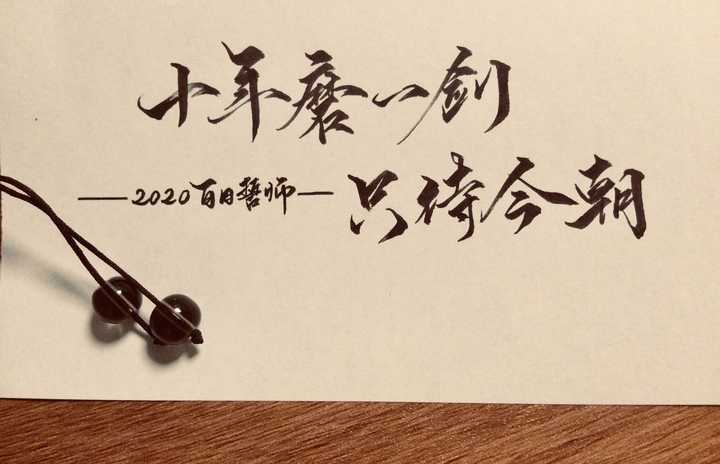 十年磨一剑
—2020百日誓师—
只待今朝